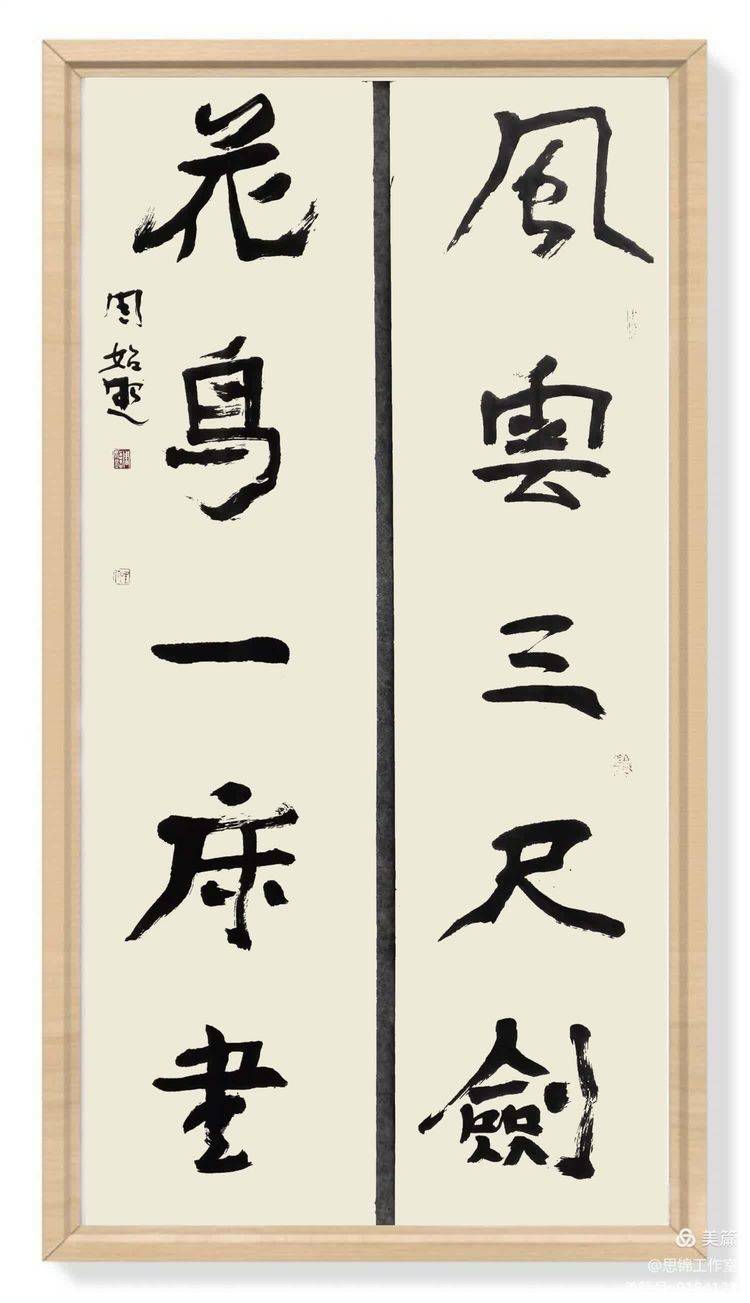 風雲三尺劍
花鳥一床書
周始
美篇
@思锦工作室